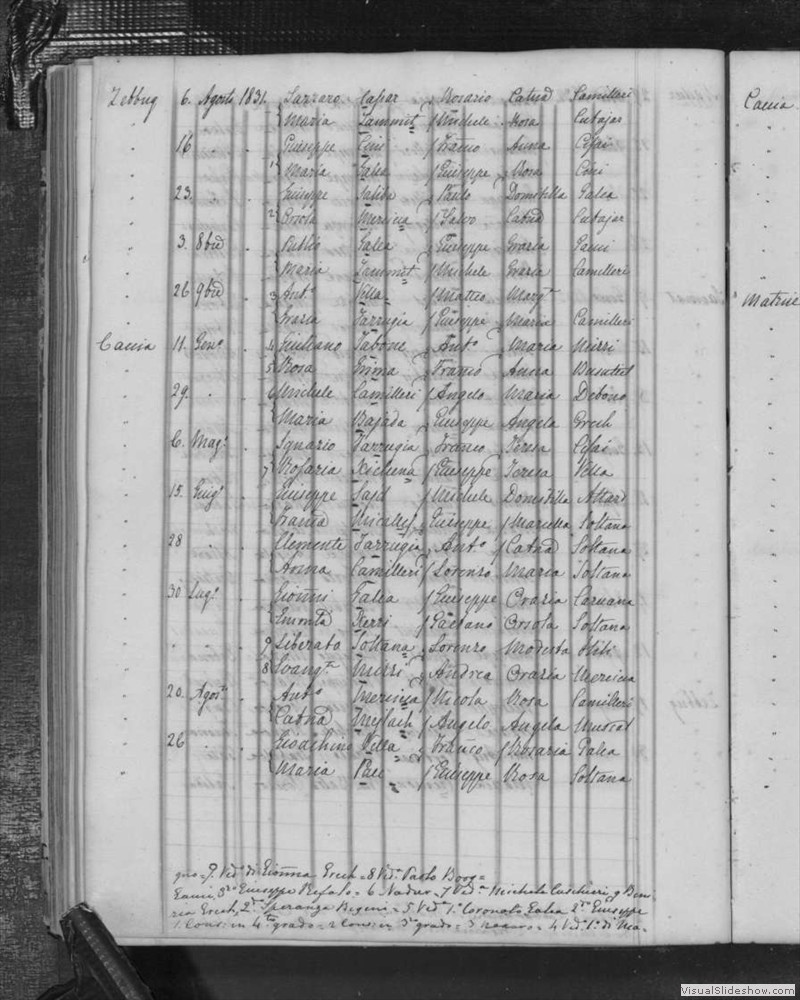 Zebbug 6. Agosto 1831. Lazzaro Caspar Rosario Catnd Camilleri
Maria Zammit Michele Rosa Cutajar
16 Giuseppe Cini Franco Anna Cefai
1 Maria Galea Giuseppe Rosa Cini
23. Giuseppe Saliba Paolo Domitilla Galea
2 Orsola Mercieca Salvo Catnd Cutajar
3. 8bre Publio Galea Giuseppe Grazia Gauci
Maria Zammit Michele Grazia Camilleri
26 9bre 3 Anto Vella Matteo Margta
Grazia Farrugia Giuseppe Maria Camilleri
Caccia 11. Geno 4 Giuliano Tabone Anto Maria Mizzi
5 Rosa Grima Franco Anna Busuttil
29. 6 Michele Camilleri Angelo Maria Debono
Maria Bajada Giuseppe Angela Grech
6. Mago Ignazio Farrugia Franco Teresa Cefai
7 Rosaria Xicluna Giuseppe Teresa Vella
15. Giugo Giuseppe Said Michele Domitilla Attard
Franca Micallef Giuseppe Marcella Soltana
28 Clemente Farrugia Anto Catnd Soltana
Anna Camilleri Lorenzo Maria Soltana
30 Lugo Gionni Galea Giuseppe Grazia Caruana
Xerri Gaetano Orsola Soltana
9 Liberato Soltana Lorenzo Modesta
8 Evangta Mizzi Andrea Grazia Mercieca
20. Agosto Anto Mercieca Nicola Rosa Camilleri
Catnd Angelo Angela Muscat
26 Gioachino Vella Franco Rosaria Galea
Maria Giuseppe Rosa Soltana
9. Ved. di Gionna Grech = 8 Ved. Paolo Borg =
Gauci, 3zo Giuseppe Refalo = 6 Nadur = 7 Ved. Michele Cuschieri, 9
Grech, 2. Speranza = 5 Ved. 1. Coronato Galea 2. Giuseppe
1. Cons: in 4to grado = 2 Cons: in 3o grado = 3 = 4 Ved. 1. di
Caccia
Matrice
VisualSlideshow.com